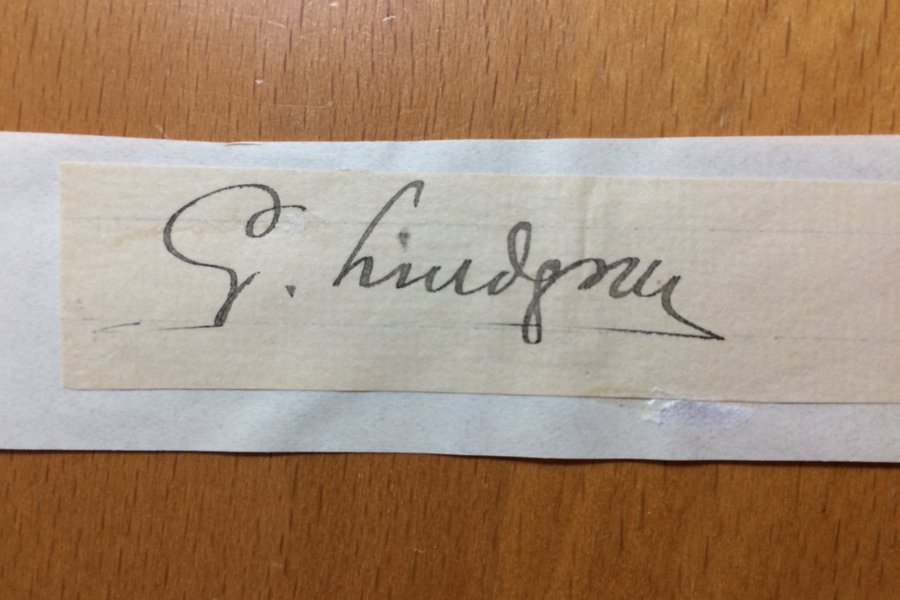 G. Lindgren